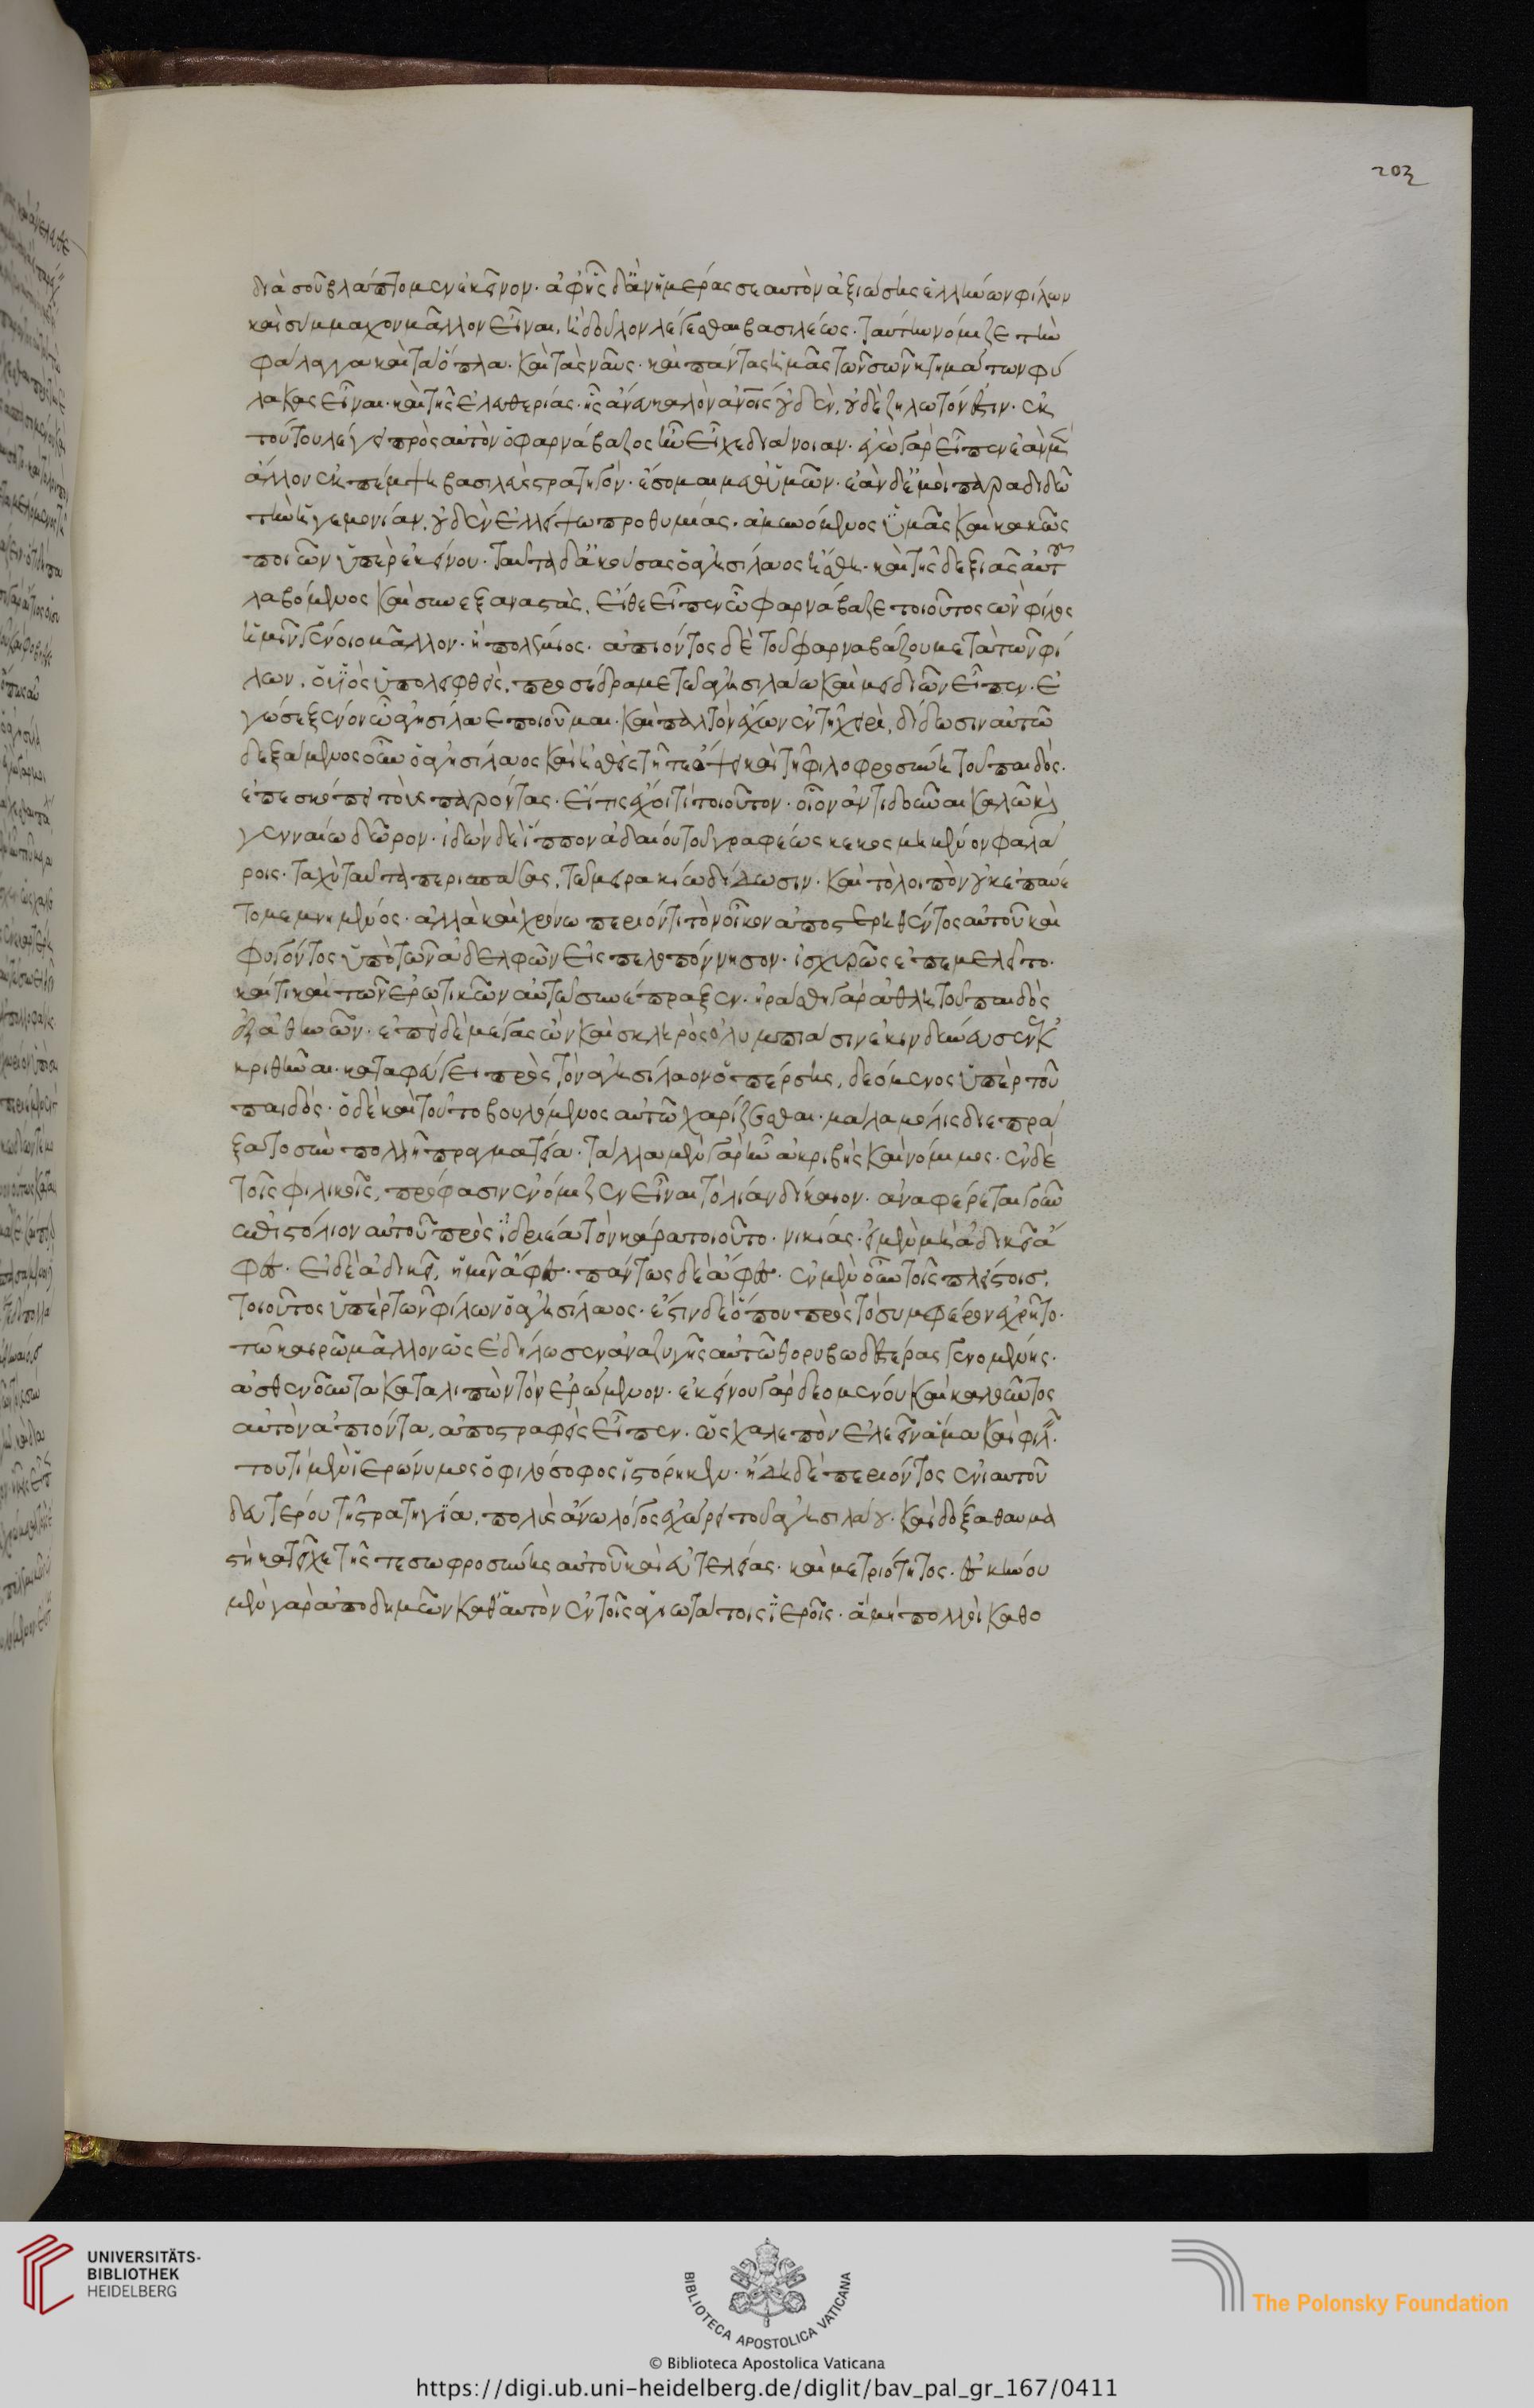 203
διὰ σοῦ βλάπτομεν ἐκεῖνον· ἀφ' ἧς δ' ἂν ἡμέρας σεαυτὸν ἀξιώσης ἑλλήνων φίλον
καὶ σύμμαχον μᾶλλον εἶναι, ἢ δοῦλον λέγεσθαι βασιλέως· ταύτην νόμιζε τὴν
φάλαγγα καὶ τὰ ὅπλα· καὶ τὰς ναῦς· καὶ πάντας ἡμᾶς τῶν σῶν κτημάτων φύ
λακας εἶναι· καὶ τῆς ἐλευθερίας· ἧς ἄνευ καλὸν ἀνοις οὐδὲν, οὐδὲ ζηλωτόν ἐστιν· ἐκ
τούτου λέγει πρὸς αὐτὸν ὁ φαρνάβαζος ἣν εἶχε διάνοιαν· ἐγὼ γὰρ εἶπεν ἐὰν μὲν
ἄλλον ἐκπέμψη βασιλεὺς στρατηγόν· ἔσομαι μεθ' ὑμῶν· ἐὰν δ' ἐμοὶ παραδιδῶ
τὴν ἡγεμονίαν, οὐδὲν ἐλλείψω προθυμίας· ἀμυνόμενος ὑμᾶς καὶ κακῶς
ποιῶν ὑπὲρ ἐκείνου· ταῦτα δ' ἀκούσας ὁ ἀγησίλαος ἥσθη· καὶ τῆς δεξιᾶς αὐτοῦ
λαβόμενος καὶ συνεξαναστὰς, εἴθε εἶπεν ὦ φαρνάβαζε τοιοῦτος ὢν φίλος
ἡμῖν γένοιο μᾶλλον· ἢ πολέμιος· ἀπιόντος δὲ τοῦ φαρναβάζου μετὰ τῶν φί
λων, ὁ υἱὸς ὑπολειφθεὶς, προσέδραμε τῶ ἀγησιλάω καὶ μειδιῶν εἶπεν· ἐ
γώ σε ξένον ὦ ἀγησίλαε ποιοῦμαι· καὶ παλτὸν ἔχων ἐν τῆ χειρὶ, δίδωσιν αὐτῶ
δεξάμενος οὖν ὁ ἀγησίλαος καὶ ἡσθεὶς τῆ τε ὄψει καὶ τῆ φιλοφροσύνη τοῦ παιδός·
ἐπεσκόπει τοὺς παρόντας· εἴ τις ἔχοι τι τοιοῦτον· οἷον ἀντιδοῦναι καλῶ καὶ
γενναίω δῶρον· ἰδὼν δὲ ἵππον ἀδαιου τοῦ γραφέως κεκοσμημένον φαλά
ροις· ταχὺ ταῦτα περισπάσας, τῶ μειρακίω δίδωσιν· καὶ τὸ λοιπὸν οὐκ ἐπαύε
το μεμνημένος· ἀλλὰ καὶ χρόνω περιόντι τὸν οἶκον ἀποστερηθέντος αὐτοῦ καὶ
φυγόντος ὑπὸ τῶν ἀδελφῶν εἰς πελοπόννησον· ἰσχυρῶς ἐπεμελεῖτο·
καί τι καὶ τῶν ἐρωτικῶν αὐτῶ συνέπραξεν· ἠράσθη γὰρ ἀθλητοῦ παιδὸς
ἐξ ἀθηνῶν· ἐπεὶ δὲ μέγας ὢν καὶ σκληρὸς ὀλυμπίασιν ἐκινδύνευσεν ἐκ
κριθῆναι· καταφεύγει πρὸς τὸν ἀγησίλαον ὁ πέρσης, δεόμενος ὑπὲρ τοῦ
παιδός· ὁ δὲ καὶ τοῦτο βουλόμενος αὐτῶ χαρίζεσθαι· μάλα μόλις διεπρά
ξατο σὺν πολλῆ πραγματεία· τἄλλα μὲν γὰρ ἦν ἀκριβὴς καὶ νόμιμος· ἐν δὲ
τοῖς φιλικοῖς, πρόφασιν ἐνόμιζεν εἶναι τὸ λίαν δίκαιον· ἀναφέρεται γοῦν
ἐπιστόλιον αὐτοῦ πρὸς ἱδριέα τὸν κάρα τοιοῦτο· νικίας· εἰ μὲν μὴ ἀδικεῖ ἄ
φες· εἰ δὲ ἀδικεῖ, ἡμῖν ἄφες· πάντως δὲ ἄφες· ἐν μὲν οὖν τοῖς πλείστοις,
τοιοῦτος ὑπὲρ τῶν φίλων ὁ ἀγησίλαος· ἔστιν δὲ ὅπου πρὸς τὸ συμφέρον ἐχρῆτο·
τῶ καιρῶ μᾶλλον ὡς ἐδήλωσεν ἀναζυγῆς αὐτῶ θορυβωδεστέρας γενομένης·
ἀσθενοῦντα καταλιπὼν τὸν ἐρώμενον· ἐκείνου γὰρ δεομένου καὶ καλοῦντος
αὐτὸν ἀπιόντα, ἀποστραφεὶς εἶπεν· ὡς χαλεπὸν ἐλεεῖν ἅμα καὶ φιλ·
τουτὶ μὲν ἱερώνυμος ὁ φιλόσοφος ἱστόρηκεν· ἤδη δὲ περιόντος ἐνιαυτοῦ
δευτέρου τῆ στρατηγία, πολὺς ἄνω λόγος ἐχώρει τοῦ ἀγησιλάου· καὶ δόξα θαυμα
στὴ κατεῖχε τῆς τε σωφροσύνης αὐτοῦ καὶ εὐτελείας· καὶ μετριότητος· ἐσκήνου
μὲν γὰρ ἀποδημῶν καθ' αὑτὸν ἐν τοῖς ἁγιωτάτοις ἱεροῖς· ἃ μὴ πολλοὶ καθο
UNIVERSITÄTS-
BIBLIOTHEK
HEIDELBERG
BIBLIOTECA APOSTOLICA VATICANA
The Polonsky Foundation
© Biblioteca Apostolica Vaticana
https://digi.ub.uni-heidelberg.de/diglit/bav_pal_gr_167/0411